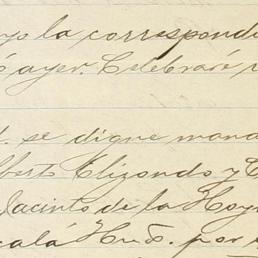 yo la correspondi
ayer. Celebraré
se digne mana
Elizondo y
Jacinto de la Hoy
calá Hnõ. por